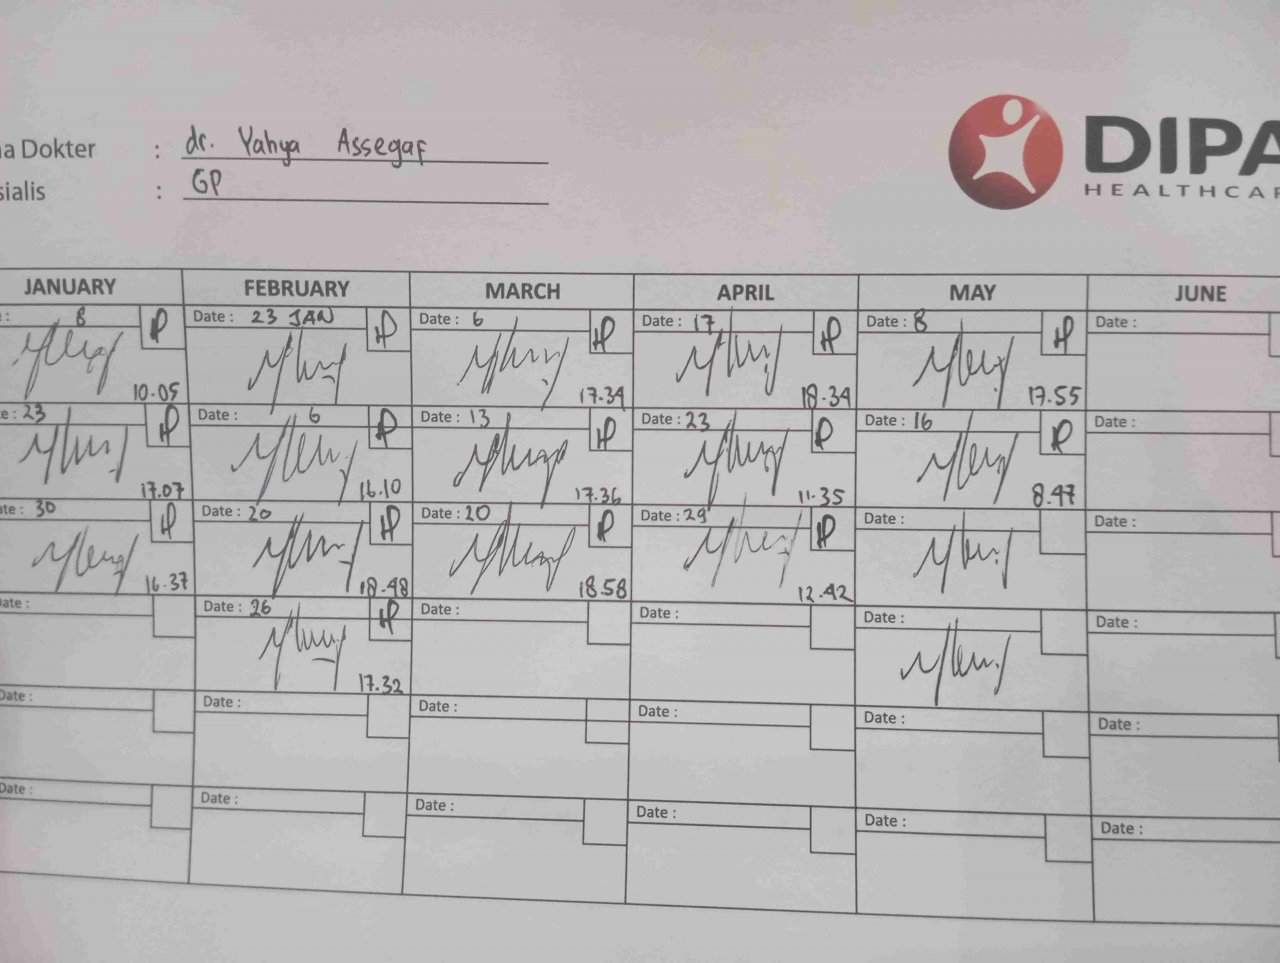 a Dokter : dr. Yahya Assegaf
sialis : GP
DIPA
HEALTHCAR
JANUARY FEBRUARY MARCH APRIL MAY JUNE
: 8 Date : 23 JAN Date : 6 Date : 17 Date : 8 Date :
10.05 17.34 18.34 17.55
e : 23 Date : 6 Date : 13 Date : 23 Date : 16 Date :
17.07 16.10 17.36 11.35 8.47
ate : 30 Date : 20 Date : 20 Date : 29 Date : Date :
16.37 18.48 18.58 12.42
ate : Date : 26 Date : Date : Date : Date :
17.32
Date : Date : Date : Date : Date : Date :
Date : Date : Date : Date : Date : Date :